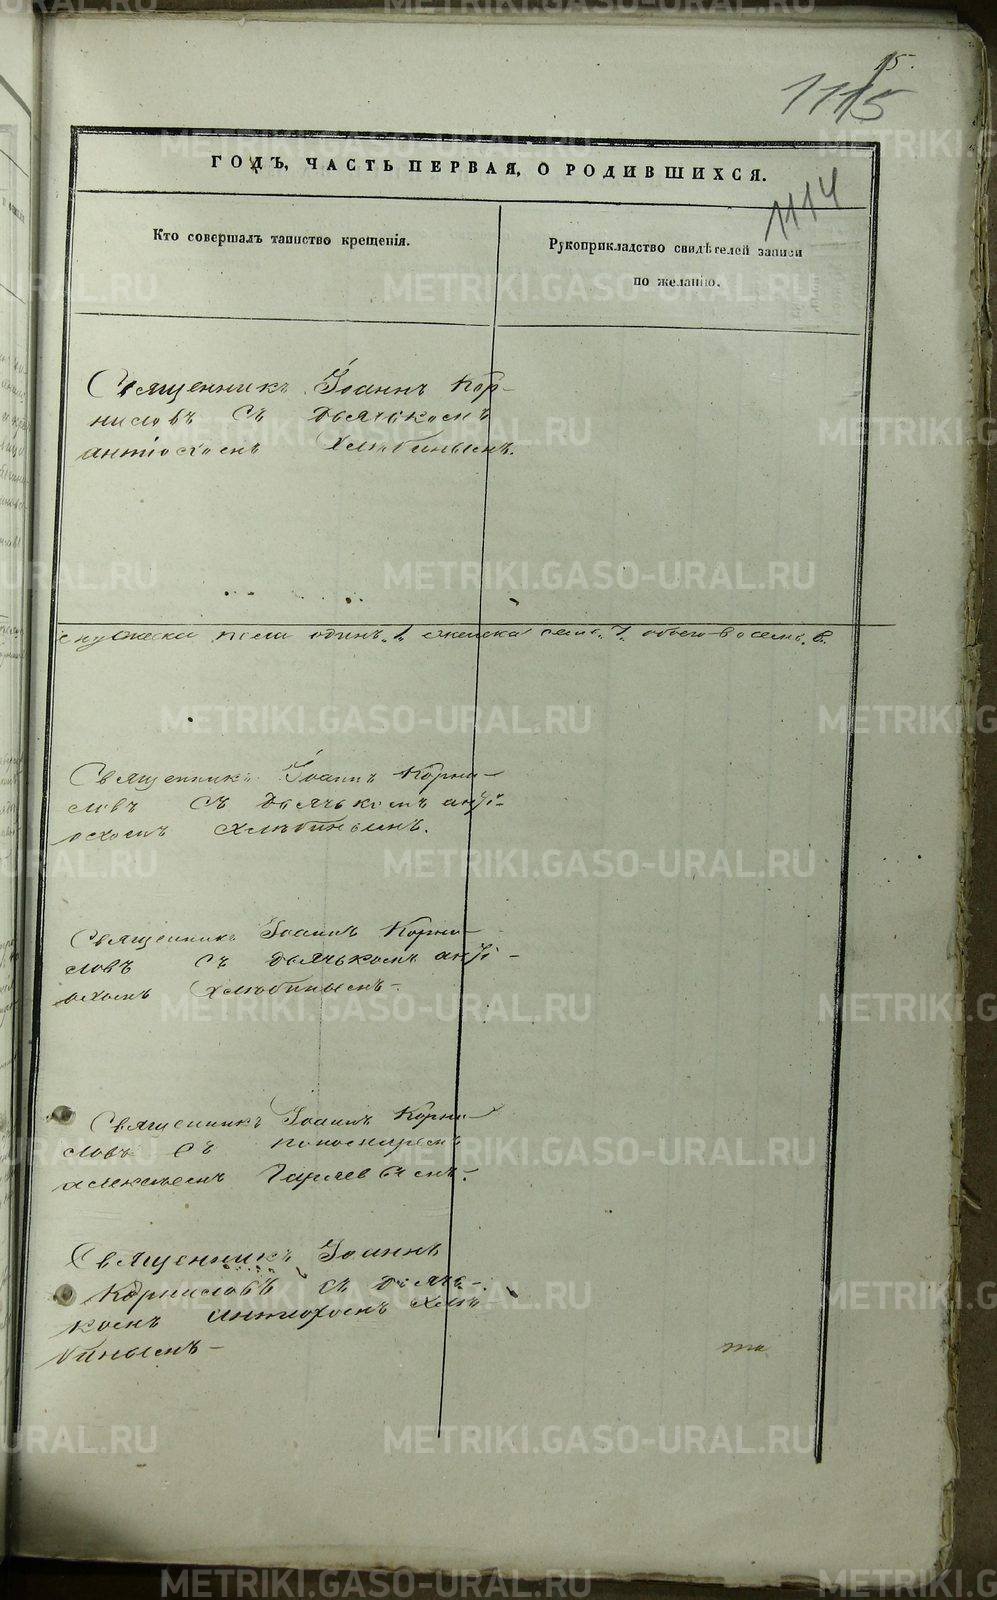 15.
1115
ГОДЪ, ЧАСТЬ ПЕРВАЯ, О РОДИВШИХСЯ.
1114
Кто совершалъ таинство крещенія.
Рукоприкладство свидѣтелей записи
по желанію.
Священникъ Іоаннъ Кор-
ниловъ съ дьячькомъ
антіохомъ Хлѣбинымъ.
мужеска пола одинъ. 1. женска семь. 7. обоего восемь. 8.
Священникъ Іоаннъ Корни-
ловъ съ дьячькомъ анті-
охомъ Хлѣбинымъ.
Священникъ Іоаннъ Корни-
ловъ съ дьячькомъ анті-
охомъ Хлѣбинымъ-
Священникъ Іоаннъ Корни-
ловъ съ пономаремъ
алексѣемъ
Священникъ Іоаннъ
Корниловъ съ дьячь-
комъ антіохомъ Хлѣ-
бинымъ-
METRIKI.GASO-URAL.RU